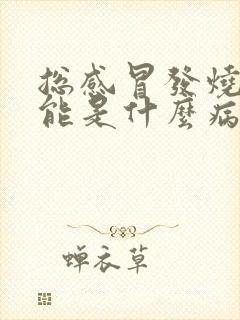 总感冒發燒
能是什麼病
蝉衣草